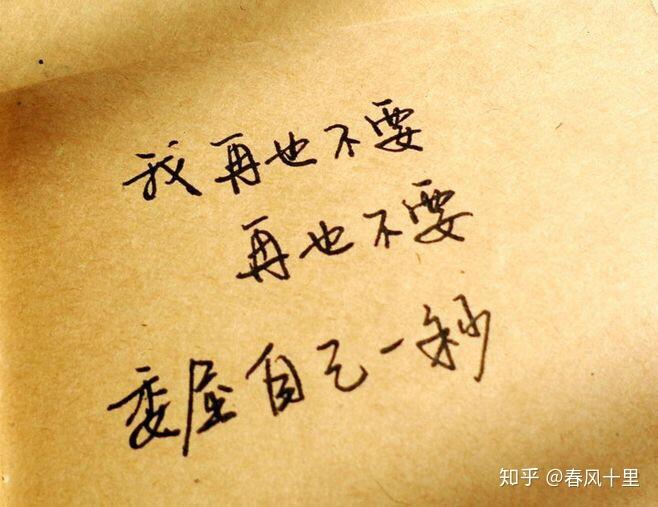 我再也不要
再也不要
委屈自己一秒
知乎 @春风十里